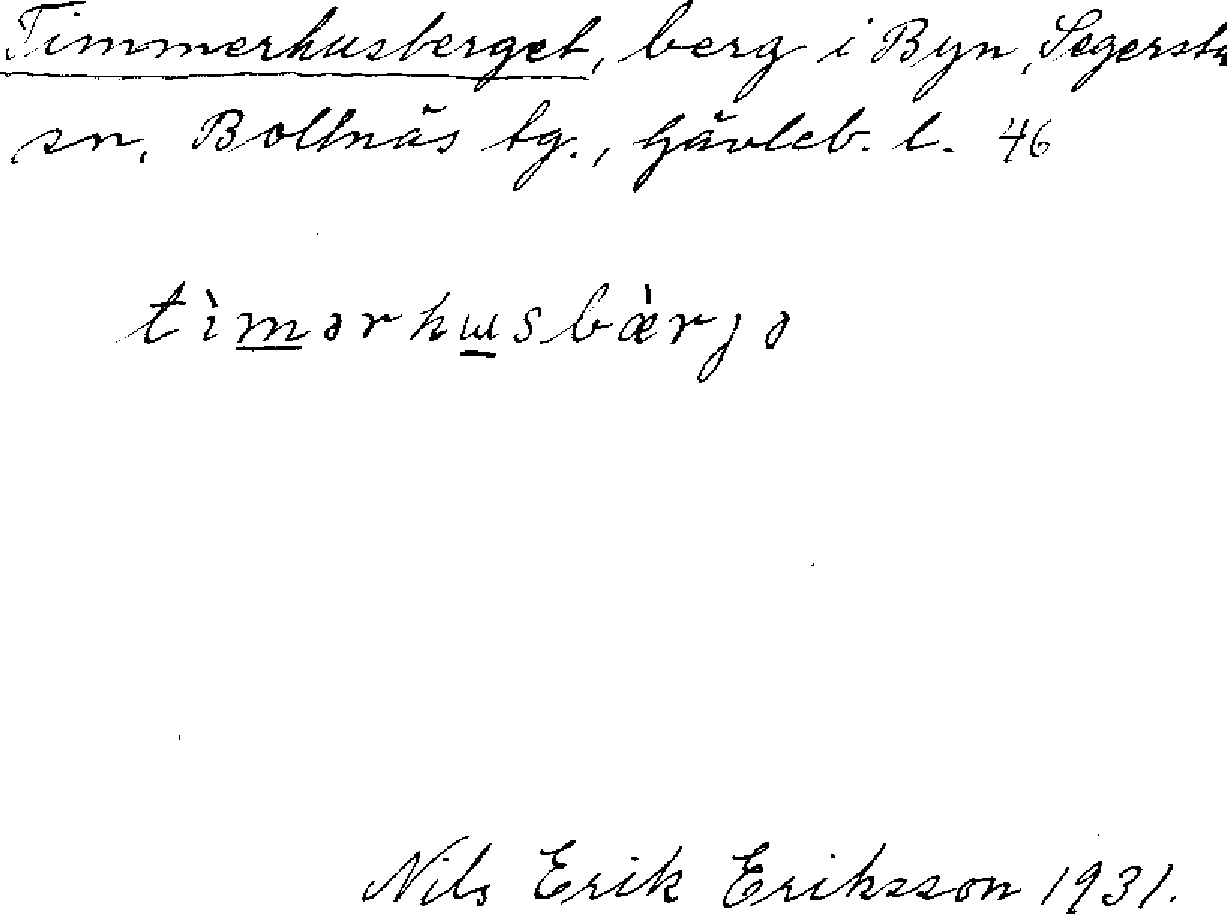 Timmerhusberget, berg i Byn, Segersta
sn, Bollnäs tg., Gävleb. l. 46
tìmərhɯsbæ̀rjə
Nils Erik Eriksson 1931.